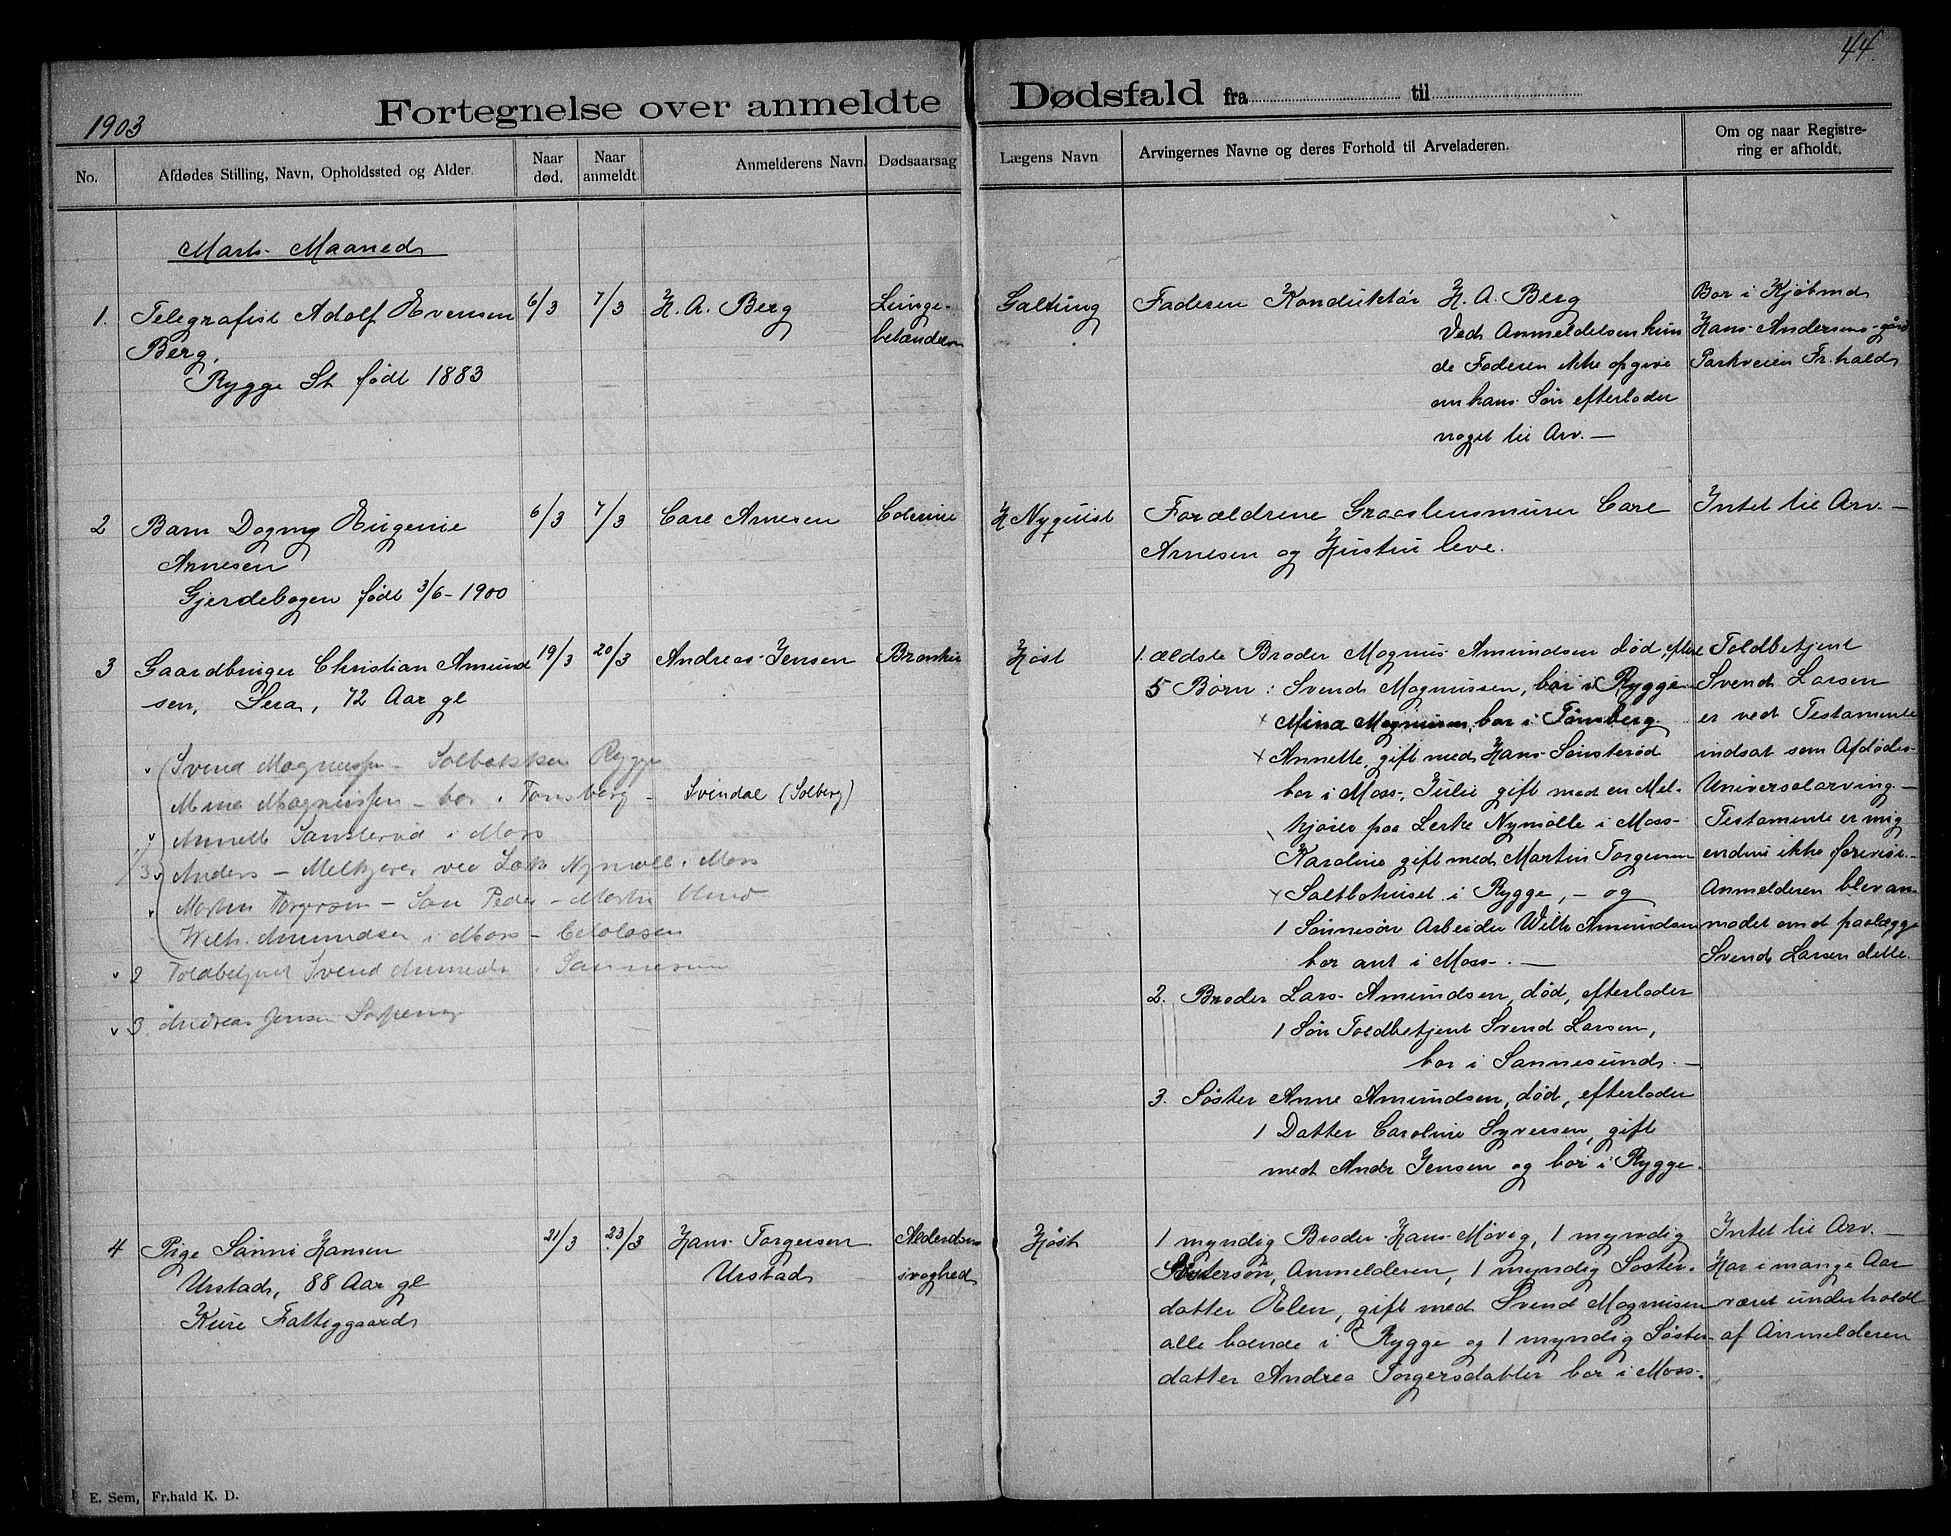 44.
1903
Fortegnelse over anmeldte Dødsfald fra til
No.
Afdødes Stilling, Navn, Opholdssted og Alder.
Naar død.
Naar anmeldt
Anmelderens Navn.
Dødsaarsag
Lægens Navn
Arvingernes Navne og deres Forhold til Arveladeren.
Om og naar Registre-
ring er afholdt.
Marts Maaned
1.
Telegrafist Adolf Evensen
Berg,
Rygge St født 1883
6/3
7/3
H. A. Berg
Lunge-
betændelse
Galtung
Faderen Konduktør H. A. Berg
Ved Anmeldelsen kun
de Faderen ikke opgive
om hans Søn efterlader
noget til Arv. —
Bor i Kjøbmd
Hans Andersens gård
Parkveien Fr.hald
2
Barn Dagny Eugenie
Arnesen
Gjerdebogen født 3/6 - 1900
6/3
7/3
Carl Arnesen
Colerine
H Nyquist
Forældrene Graastensmurer Carl
Arnesen og Hustru leve.
Intet til Arv. —
3
Gaardbruger Christian Amund
sen, Sera, 72 Aar gl
19/3
20/3
Andreas Jensen
Høst
1. ældste Broder Magnus Amundsen død, efterl
5 Børn: Svend Magnussen, bor i Rygge
Mina Magnussen, bor i Tønsberg.
Annette, gift med Hans Sønsterød
bor i Moss, Julie gift med en Mel-
kjører paa Lerke Nymølle i Moss
Karoline gift med Martin Torgersen
Saltbohuset i Rygge, — og
1 Sønnesøn Arbeider Wilh Amundsen
bor ant i Moss. —
2. Broder Lars Amundsen, død, efterlader
1 Søn Toldbetjent Svend Larsen,
bor i Sannesund. —
3. Søster Anne Amundsen, død, efterlader
1 Datter Caroline Syversen, gift
med Andr Jensen og bor i Rygge.
Toldbetjent
Svend Larsen
er ved Testamente
indsat som Afdødes
Universalarving. —
Testamente er mig
endnu ikke forevist
Anmelderen blev an-
modet om at paalægge
Svend Larsen dette.
Svend Magnussen - Solbakken Rygge
Mina Magnussen - bor i Tønsberg - Svindal (Solberg)
Annette Sønsterød i Moss
Anders - Melkjører ved Nymølle i Moss
Martin Torgersen - Søn Peder - Martin
Wilh. Amundsen i Moss -
2 Toldbetjent Svend Sannesund
3. Andreas Jensen
4
Pige Sønni Hansen
Urstad, 88 Aar gl
Kure Fattiggaard
21/3
23/3
Hans Torgersen
Urstad
Alderdoms
svaghed
Høst
1 myndig Broder Hans Møvig, 1 myndig
Søstersøn, Anmelderen, 1 myndig Søster-
datter Elen, gift med Svend Magnusen
alle boende i Rygge og 1 myndig Søster-
datter Andrea Torgersdatter bor i Moss.
Intet til Arv. —
Har i mange Aar
været underholdt
af Anmelderen
E. Sem, Fr.hald K. D.